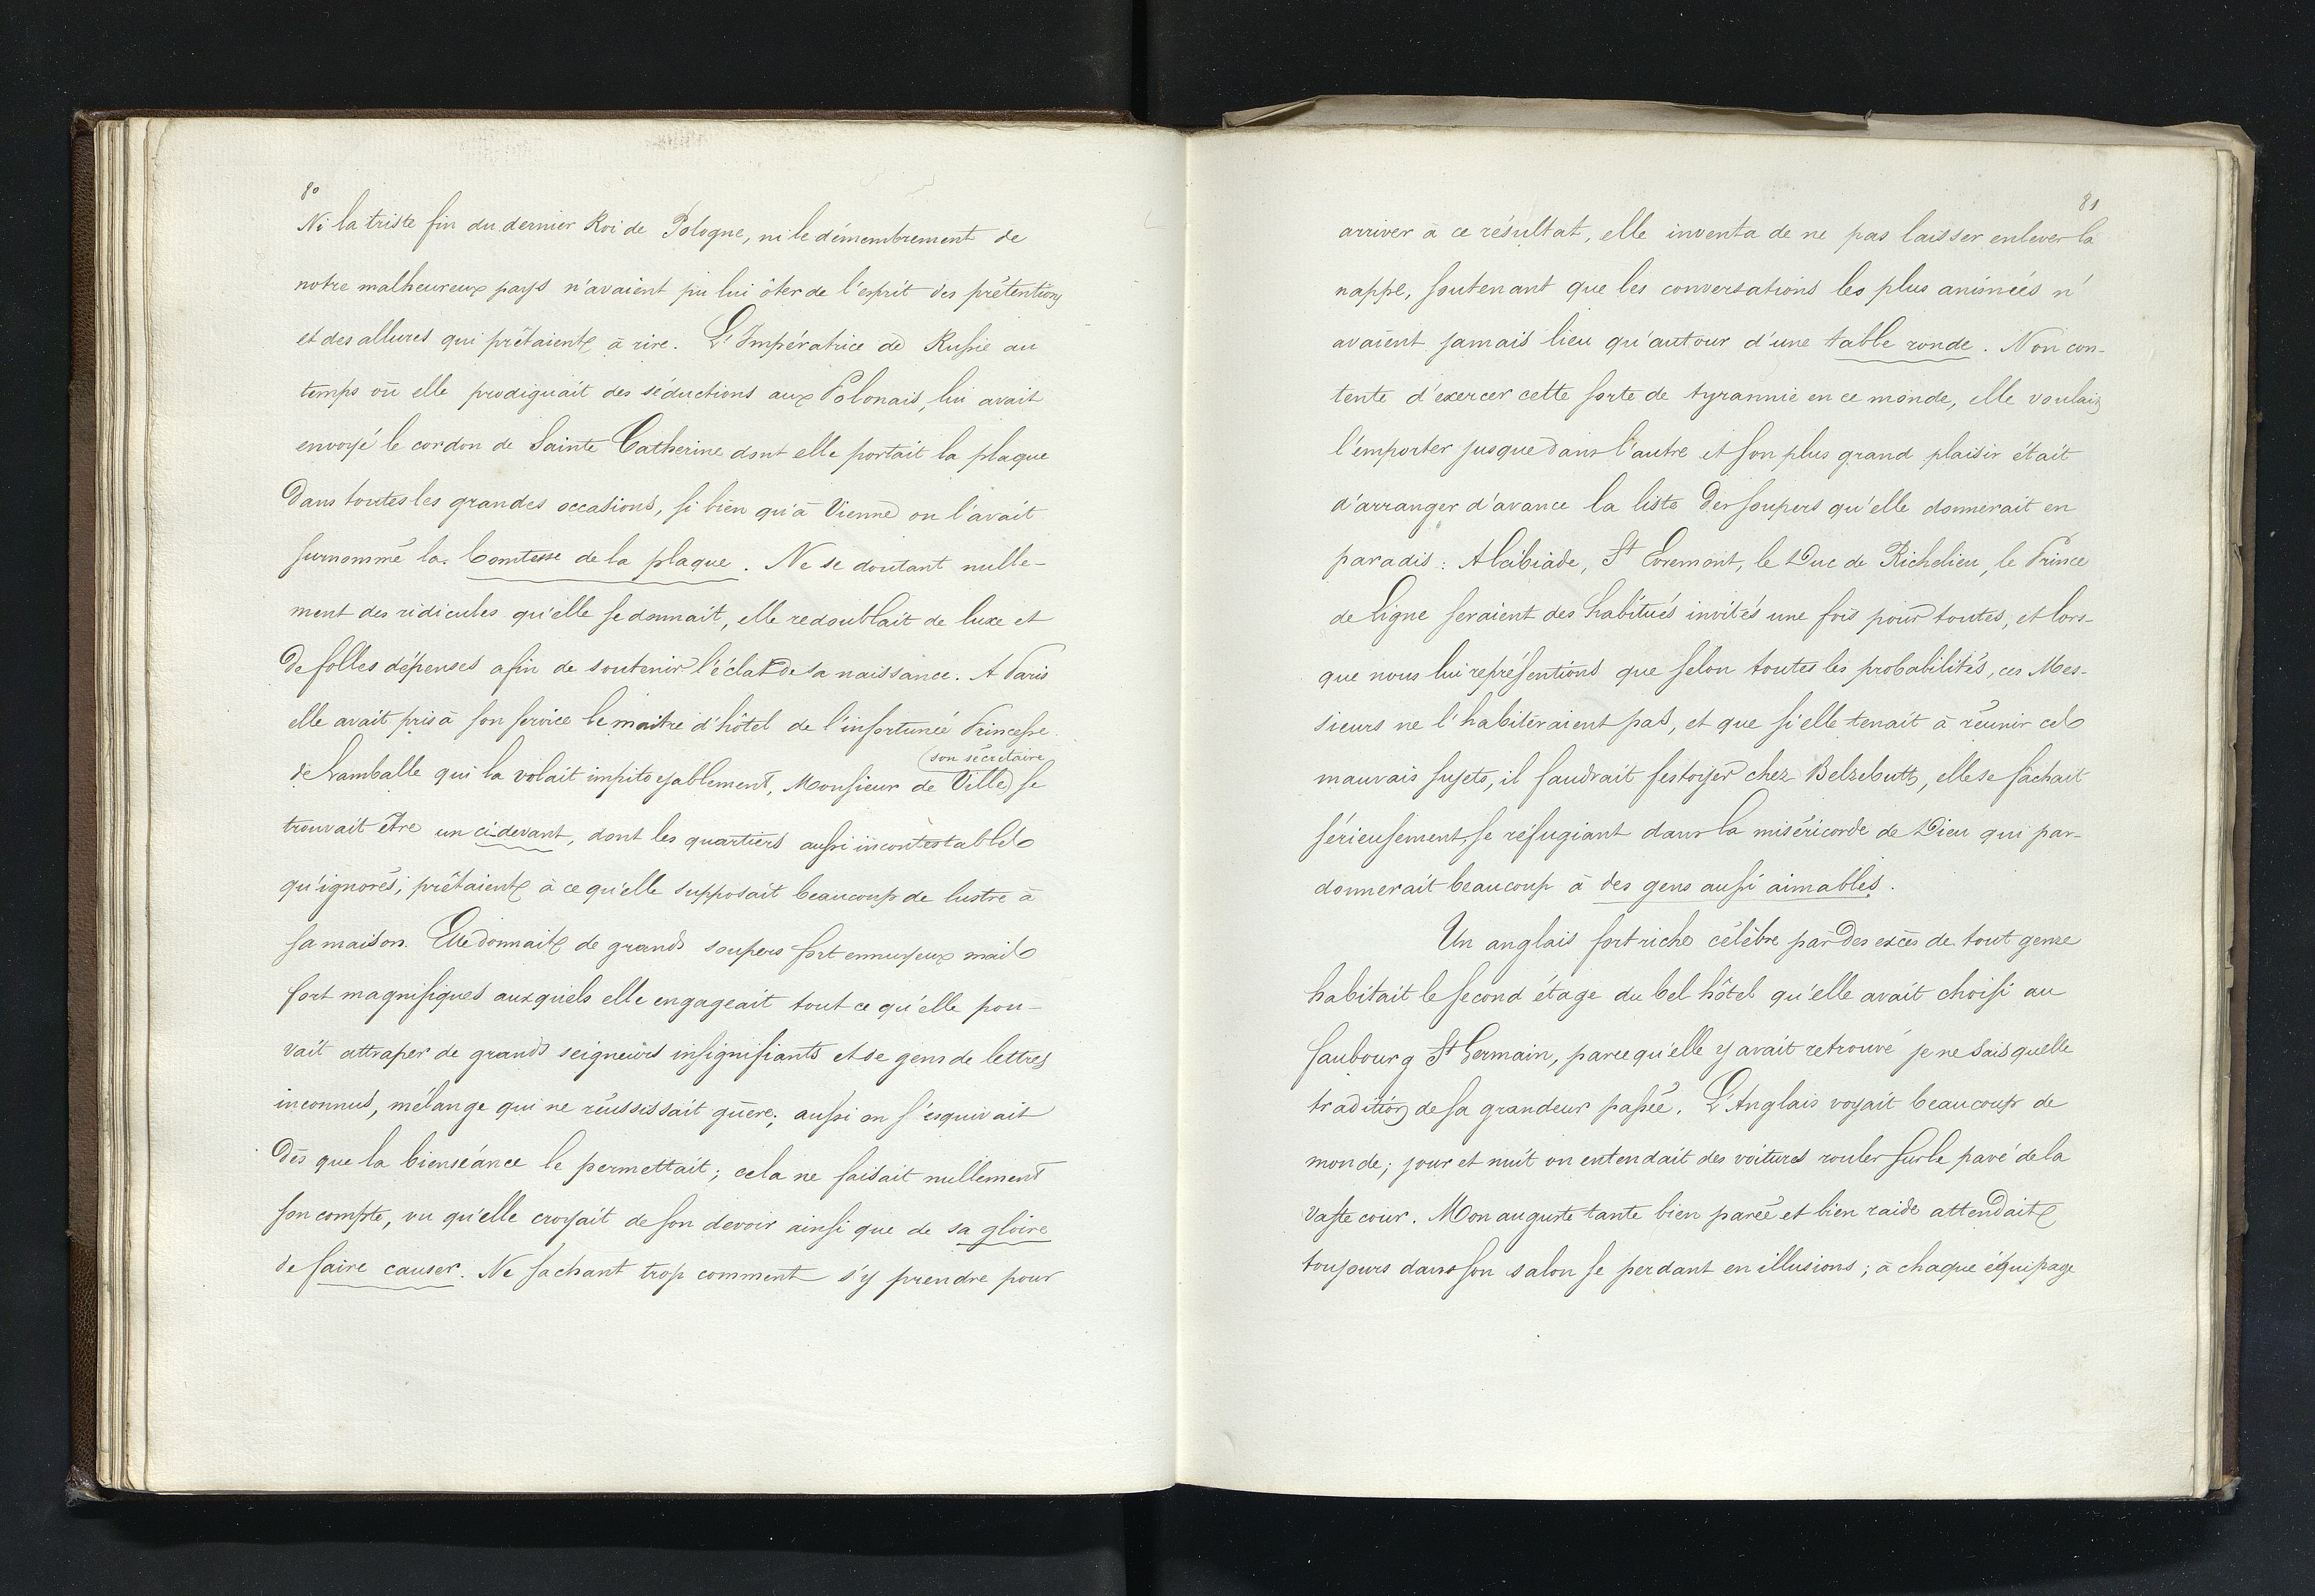 80
Ni la triste fin du dernier Roi de Pologne, ni le démembrement de
notre malheureux pays n'avaient pu lui ôter de l'esprit des prétentions
et des allures qui prêtaient à rire. L'Impératrice de Russie au
temps où elle prodiguait des séductions aux Polonais, lui avait
envoyé le cordon de Sainte Catherine dont elle portait la plaque
dans toutes les grandes occasions, si bien qu'à Vienne on l'avait
surnommé la Comtesse de la plaque. Ne se doutant nulle-
ment des ridicules qu'elle se donnait, elle redoublait de luxe et
de folles dépenses afin de soutenir l'éclat de sa naissance. A Paris
elle avait pris à son service le maître d'hôtel de l'infortunée Princesse
(son sécretaire
de Lamballe qui la volait impitoyablement, Monsieur de Ville) se
trouvait être un cidevant, dont les quartiers aussi incontestables
qu'ignorés, prêtaient à ce qu'elle supposait beaucoup de lustre à
sa maison. Elle donnait de grands soupers fort ennuyeux mais
fort magnifiques auxquels elle engageait tout ce qu'elle pou-
vait attraper de grands seigneurs insignifiants et de gens de lettres
inconnus, mélange qui ne réussissait guère; aussi on s'esquivait
dès que la bienséance le permettait; cela ne faisait nullement
son compte, vu qu'elle croyait de son devoir ainsi que de sa gloire
de faire causer. Ne sachant trop comment s'y prendre pour
81
arriver à ce résultat, elle inventa de ne pas laisser enlever la
nappe, soutenant que les conversations les plus animées n'
avaient jamais lieu qu'autour d'une table ronde. Non con-
tente d'exercer cette sorte de tyrannie en ce monde, elle voulait
l'emporter jusque dans l'autre et son plus grand plaisir était
d'arranger d'avance la liste des soupers qu'elle donnerait en
paradis: Alcibiade, St Evremont, le Duc de Richelieu, le Prince
de Ligne seraient des habitués invités une fois pour toutes, et lors-
que nous lui représentions que selon toutes les probabilités, ces Mes-
sieurs ne l'habiteraient pas, et que si elle tenait à réunir ces
mauvais sujets, il faudrait festoyer chez Belzebuth, elle se fâchait
sérieusement, se réfugiant dans la miséricorde de Dieu qui par-
donnerait beaucoup à des gens aussi aimables.
Un anglais fort riche célèbre par des excès de tout genre
habitait le second étage du bel hôtel qu'elle avait choisi au
faubourg St Germain, parcequ'elle y avait retrouvé je ne sais quelle
tradition de sa grandeur passée. L'Anglais voyait beaucoup de
monde; jour et nuit on entendait des voitures rouler sur le pavé de la
vaste cour. Mon auguste tante bien parée et bien raide attendait
toujours dans son salon se perdant en illusions; à chaque équipage